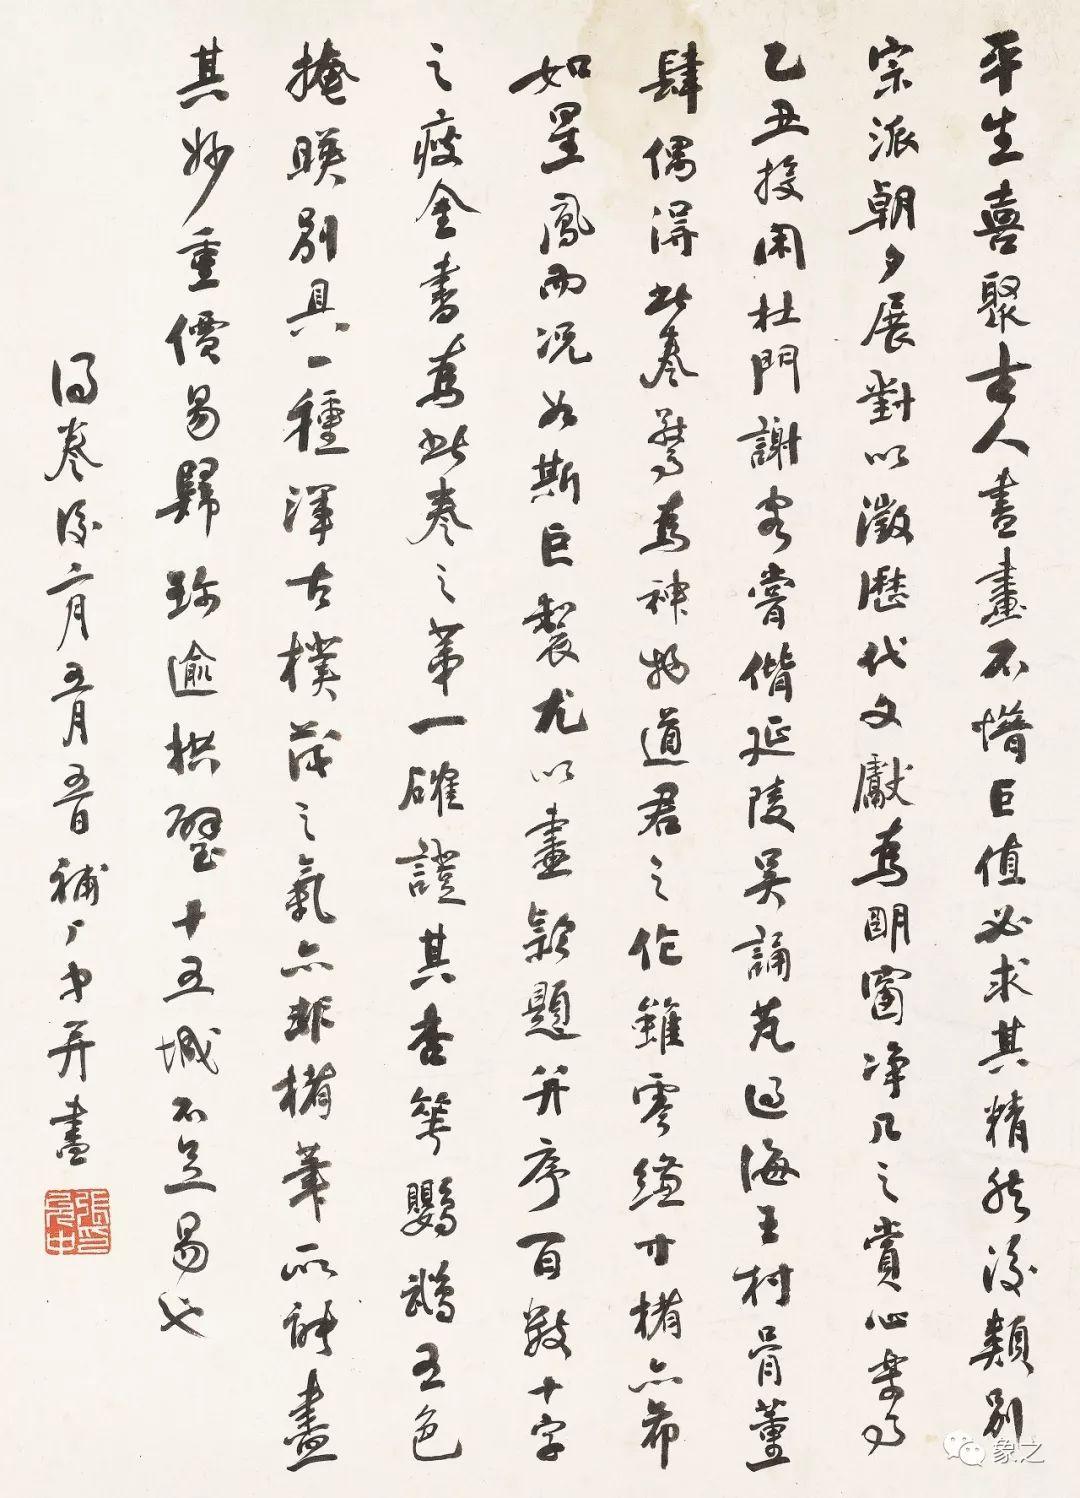 平生喜聚古人書畫不惜巨值必求其精然後類別
宗派朝夕展對以徵歷代文獻為明窗淨几之賞心樂事
乙丑投閑杜門謝客嘗偕延陵吳誦芃過海王村骨董
肆偶得此卷驚為神物道君之作雖零縑寸楮亦希
如星鳳而況如斯巨製尤以畫款題并序百數十字
之瘦金書為此卷之第一確證其杏花鸚鵡五色
掩映別具一種渾古樸茂之氣亦非楮筆所能盡
其妙重價易歸珍逾拱璧十五城不足易也
得卷後二月五月五日補
并畫
張 中
象之